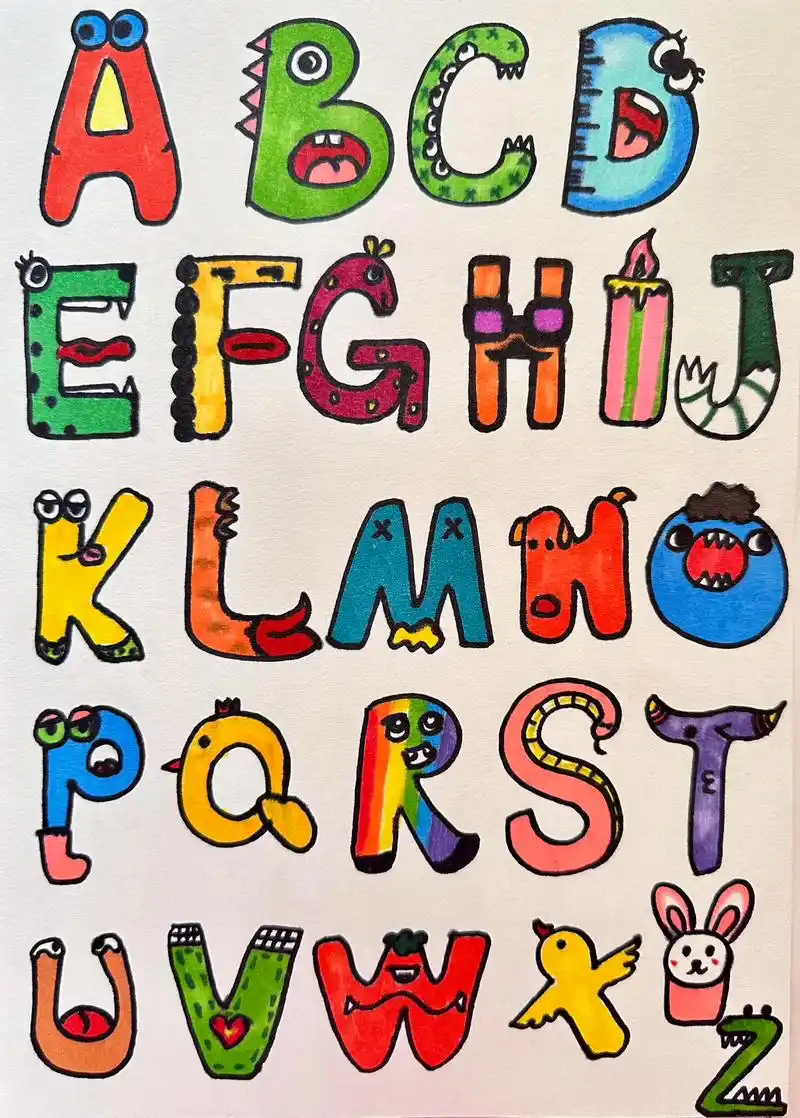 A B C D
E F G H I J
K L M N O
P Q R S T
U V W X Y Z